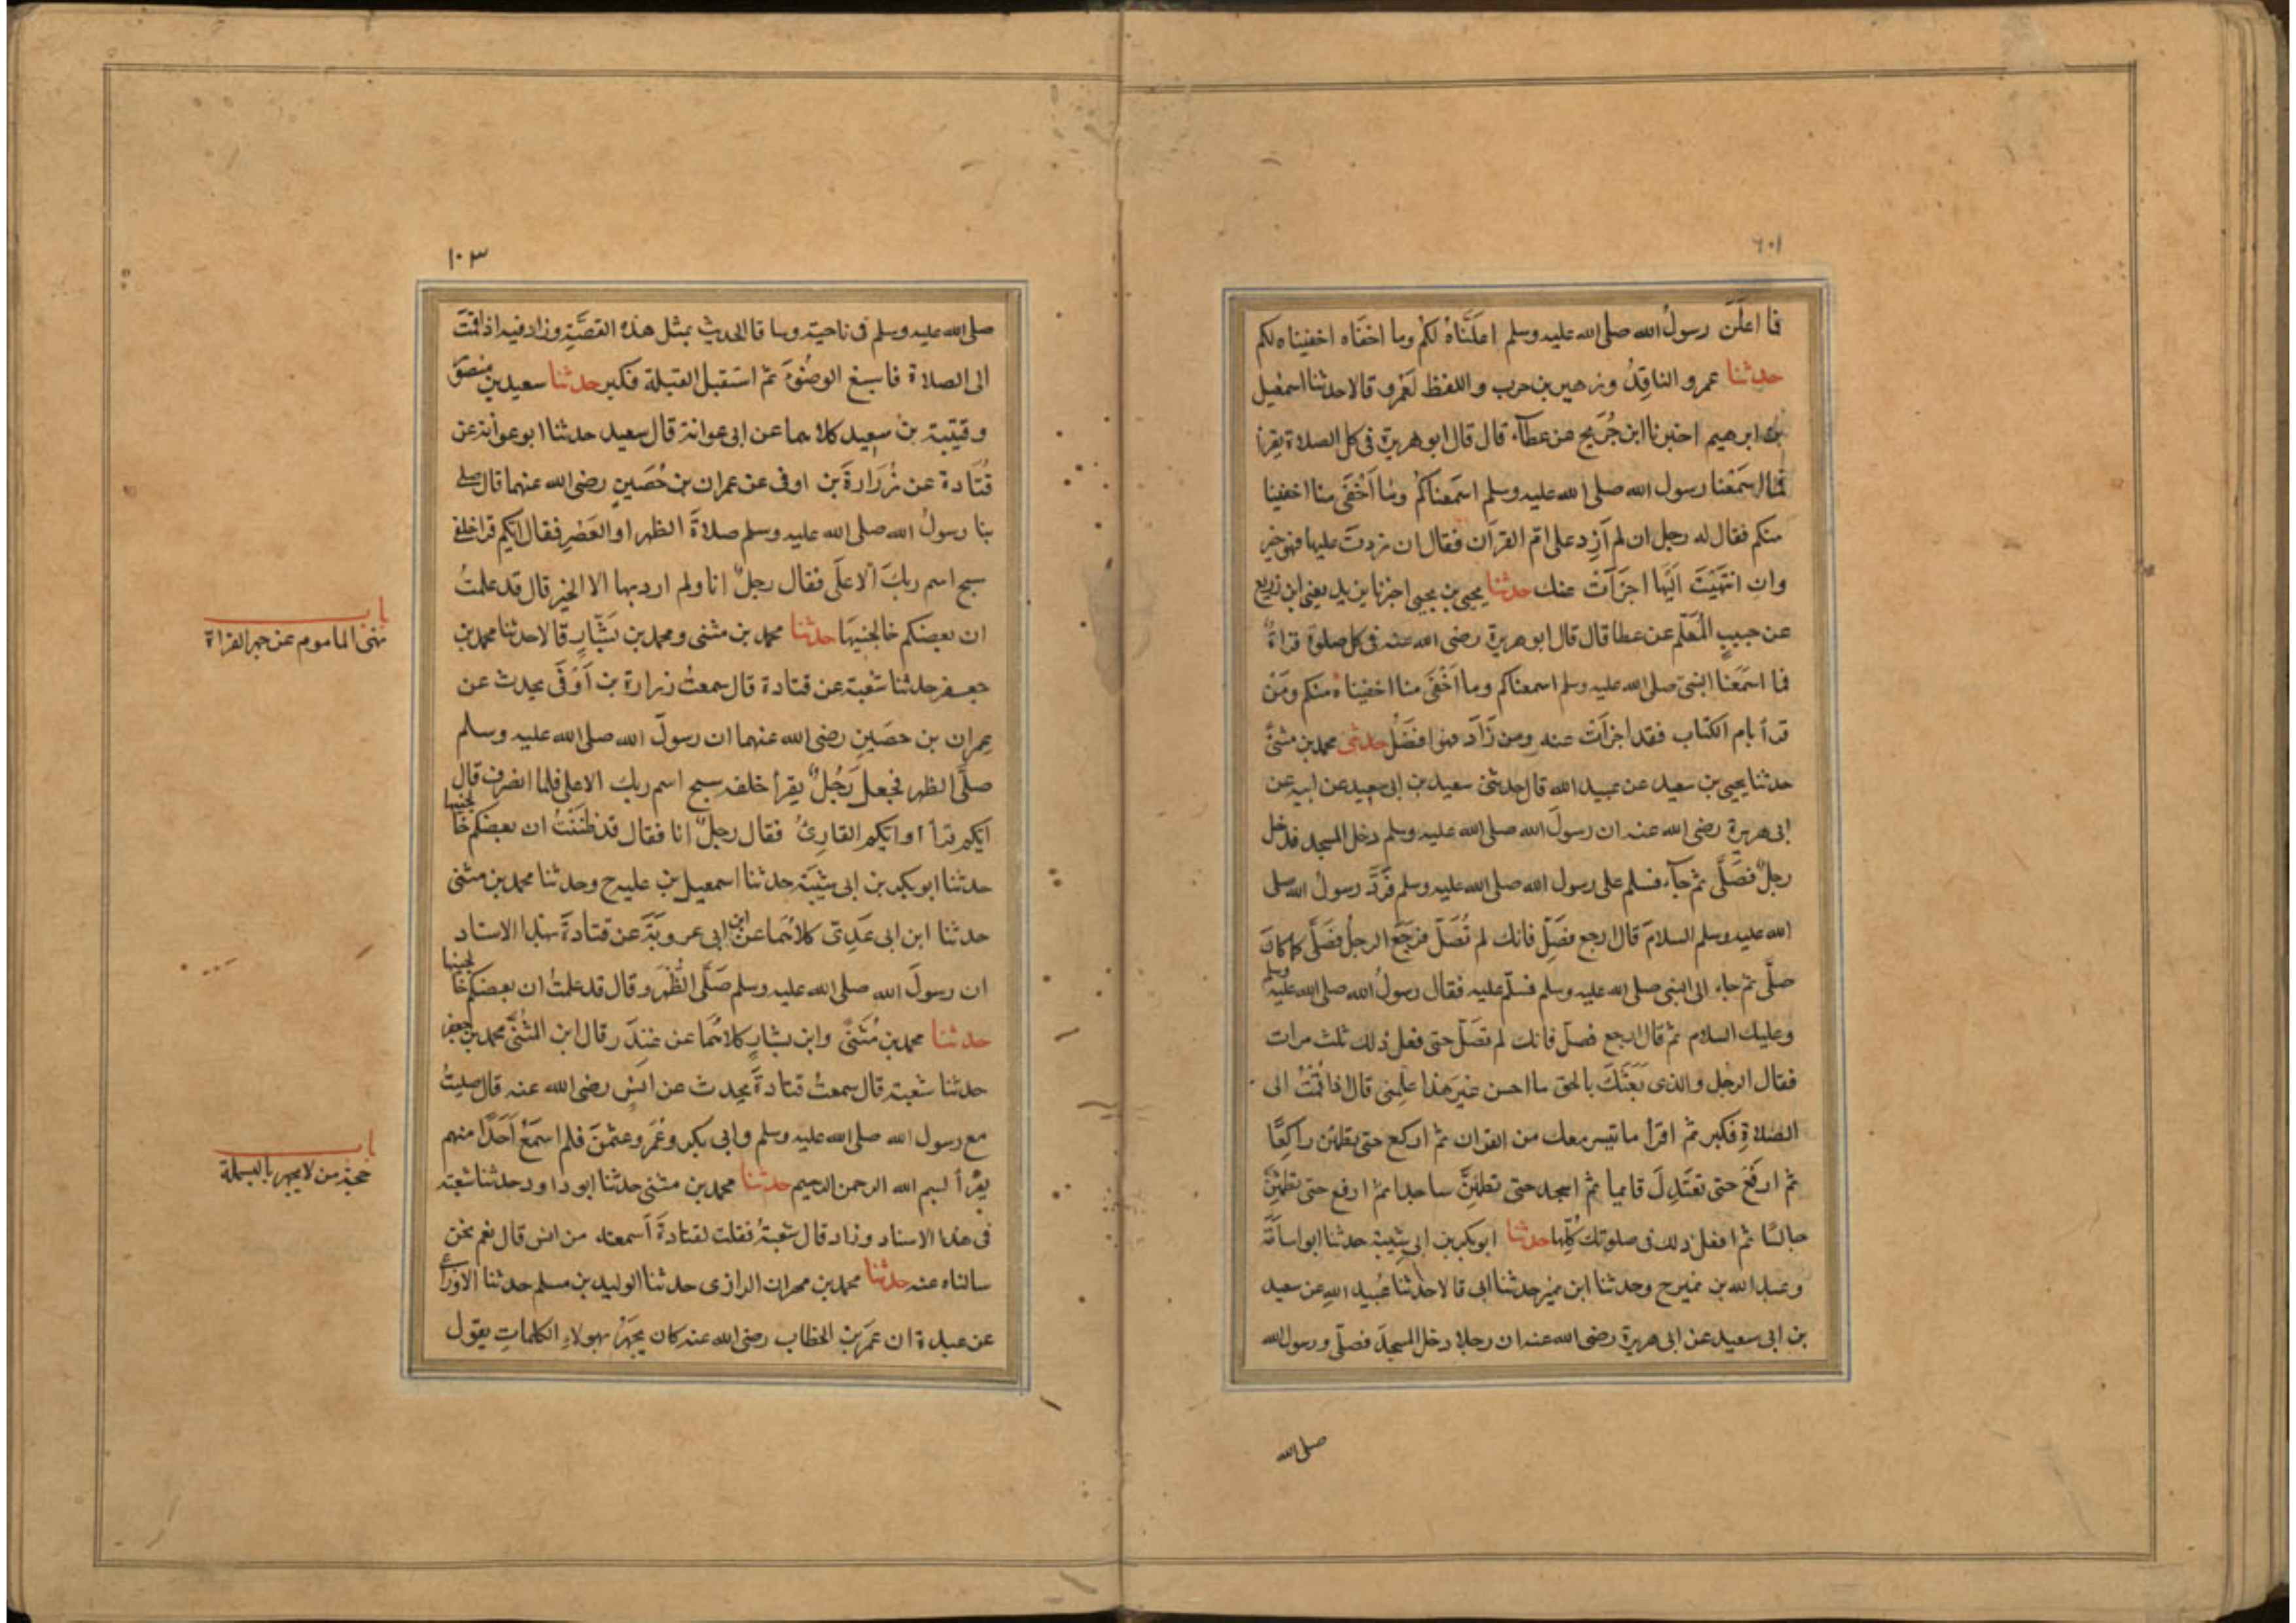 فما اعلَنَ رسولُ الله صلى الله عليه وسلم اعلَنّاهُ لكُم وما اخفَاه اخفيناه لكم
حدثنا عمرو الناقِدُ وزهير بن حرب واللفظ لعَمْرٍو قالا حدثنا اسمعيل
بن ابرهيم اخبرنا ابن جُرَيجٍ عن عطآء قال قال ابو هريرة فى كل الصلاة يقرأ
فما اسمَعَنا رسول الله صلى الله عليه وسلم اسمَعناكُمْ وما اَخْفَى منا اخفينا
منكم فقال له رجل ان لم اَزِد على ام القرآن فقال ان زدتَ عليها فهو خير
وان انتهَيْتَ اليها اجزَأتْ عنك حدثنا يحيى بن يحيى اخبرنا يزيد يعنى ابن زريع
عن حبيبٍ المُعَلّم عن عطا قال قال ابو هريرة رضى الله عنه فى كل صلوة قراءةٌ
فما اسمَعَنا النبىّ صلى الله عليه وسلم اسمعناكم وما اَخْفَى منا اخفيناه منكم ومَنْ
قرأ بام الكتاب فقد اجزأت عنه ومن زَاَدَ فهو افضَلُ حدثنى محمد بن مثنىًّ
حدثنا يحيى بن سعيد عن عبيد الله قال حدثنى سعيد بن ابى سعيد عن ابيه عن
ابى هريرة رضى الله عنه ان رسولَ الله صلى الله عليه وسلم دخل المسجد فدخل
رجلٌ فصَلّى ثم جآء فسلم على رسول الله صلى الله عليه وسلم فرَدَّ رسولُ الله صلى
الله عليه وسلم السلامَ قال ارجع فصَلِّ فانك لم تُصَلّ فرجَعَ الرجلُ فصَلَّى كما كانَ
صلَّى ثم جاء الى النبى صلى الله عليه وسلم فسلّم عليه فقال رسولُ الله صلى الله عليه وسلم
وعليك السلام ثم قال ارجع فصلّ فانك لم تصَلّ حتى فعل ذلك ثلث مرات
فقال الرجل والذى بَعَثَكَ بالحق ما احسن غيرَ هذا علِّمنى قال اذا قُمْتُ الى
الصلاةِ فكبر ثم اقرأ ما تيسر معك من القران ثم اركع حتى تطمئن راكِعًا
ثم ارفَعْ حتى تعتَدِلَ قايما ثم اسجد حتى تطمئِنَّ ساجدا ثمّ ارفع حتى تطمئِنَّ
جالسًا ثم افعل ذلك فى صلوتك كُلِّها حدثنا ابو بكر بن ابى شيبة حدثنا ابو اسامَةَ
وعبد الله بن نمير ح وحدثنا ابن نمير حدثنا ابى قالا حدثنا عُبيد اللهِ عن سعيد
بن ابى سعيد عن ابى هريرة رضى الله عنه ان رجلا دخل المسجدَ فصلّى ورسول الله
صلى الله
١٠٣
صلى الله عليه وسلم فى ناحية وساقا الحديث بمثل هذه القصّة وزاد فيه اذا قُمْتَ
الى الصلاة فاسبغ الوضُوءَ ثم استقبل القبلة فكبر حدثنا سعيد بن منصور
وقتيبة بن سعيد كلاهما عن ابى عوانة قال سعيد حدثنا ابو عوانة عن
قُتَادة عن زُرَارةَ بن اوفى عن عمران بن حُصَينٍ رضى الله عنهما قال صلى
بنا رسولُ الله صلى الله عليه وسلم صلاةَ الظهر او العَصْرِ فقال ايّكم قرا خلفى
سبح اسم ربكَ الاعلَى فقال رجلٌ انا ولم ارد بها الا الخيرَ قال قد علمتُ
ان بعضكم خالجنيهَا حدثنا محمد بن مثنى ومحمد بن بَشّارٍ قالا حدثنا محمد بن
جعفر حدثنا شعبة عن قتادة قال سمعتُ زرارة بن اَوْفَى يحدث عن
عِمران بن حصَينٍ رضى الله عنهما ان رسولَ الله صلى الله عليه وسلم
صلَّى الظهر فجعل رَجُلٌ يقرأ خلفه سبح اسم ربك الاعلى فلما انصرف قال
ايكم قرأ او ايكم القارِئُ فقال رجلٌ انا فقال قد ظنَنْتُ ان بعضكم خالجنيها
حدثنا ابو بكر بن ابى شيبَة حدثنا اسمعيل بن علية ح وحدثنا محمد بن مثنى
حدثنا ابن ابى عَدِىّ كلاهُمَا عن ابن ابى عروبَةَ عن قتادةَ بهذا الاسناد
ان رسولَ الله صلى الله عليه وسلم صَلَّى الظُّهْرَ وقال قد علمتُ ان بعضكم خالجنيها
حدثنا محمد بن مُثَنّىً وابن بشارٍ كلاهُمَا عن غندَر قال ابن المثُنَّى محمد بن جعفر
حدثنا شعبة قال سمعتُ قتادةَ يحدث عن انسٍ رضى الله عنه قال صليتُ
مع رسول الله صلى الله عليه وسلم وابى بكر وعُمَرَ وعثمنَ فلم اسمَعْ اَحَدًا منهم
يقرأ بسم الله الرحمن الرحيم حدثنا محمد بن مثنى حدثنا ابو داود حدثنا شعبة
فى هذا الاسناد وزاد قال شعبةُ فقلت لقتادةَ اَسمعته من انس قال نعم نحن
سالناه عنه حدثنا محمد بن مهران الرازى حدثنا الوليد بن مسلم حدثنا الاوزاعى
عن عبدة ان عمَرَ بن الخطاب رضى الله عنه كان يجهَرُ بهولاءِ الكلماتِ يقول
باب
نهى الماموم عن جهر القراة
باب
حجة من لا يجهر بالبسملة